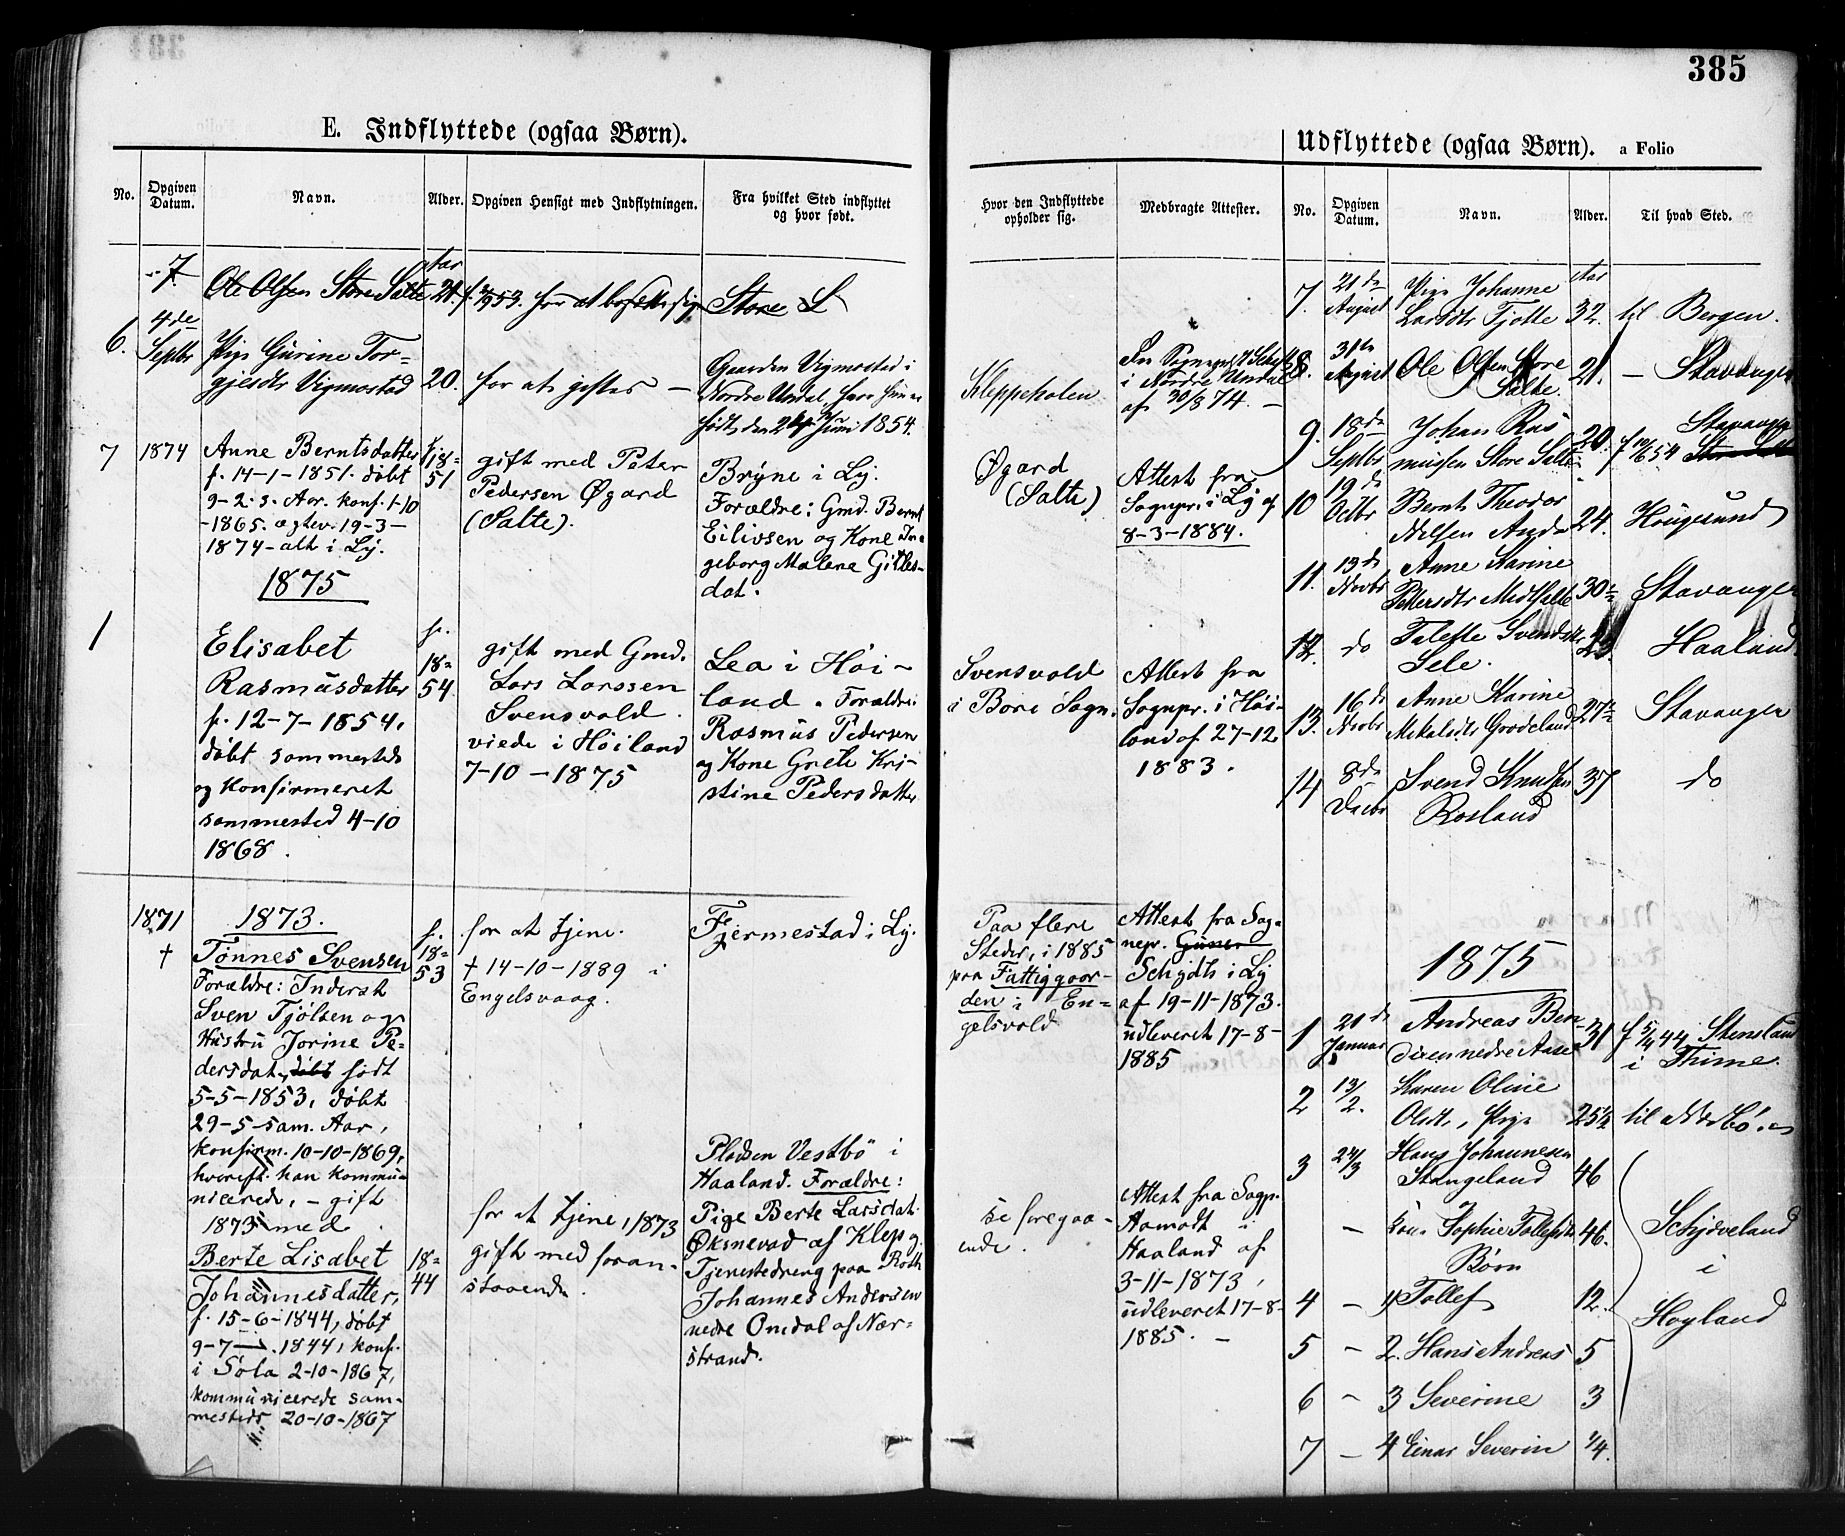 385
E. Indflyttede (ogsaa Børn).
No.
Opgiven Datum.
Navn.
Alder.
Opgiven Hensigt med Indflytningen.
Fra hvilket Sted indflyttet
og hvor født.
7
Ole Olsen Store Salte
21
for at bosætte sig
Store S
6.
4de
Septbr
Pige Gurine Tor-
gjesdtr Vigmostad
20.
for at giftes —
Gaarden Vigmostad i
Nordre Undal, hvor hun er
født den Juni 1854.
7
1874
Anne Berntsdatter
f. 14-1-1851. døbt
9-2. s. Aar. konf. 1-10
-1865. ægtev. 19-3-
1874 - alt i Ly.
f.
18=
51
gift med Peter
Pedersen Øgard
(Salte).
Bryne i Ly.
Forældre: Gmd. Bernt
Eilivsen og Kone In-
geborg Malene Gitles-
dat.
1875
1
Elisabet
Rasmusdatter
f. 12-7-1854,
døbt sammesteds
og konfirmeret
sammested 4-10
1868.
f.
18=
54
gift med Gmd.
Lars Larssen
Svensvold.
viede i Høiland
7-10-1875
Lea i Høi-
land. Forældre:
Rasmus Pedersen
og Kone Grete Kri-
stine Pedersdatter
1871
†
1873.
Tønnes Svensen
Forældre: Inderst
Sven Tjølsen og
Hustru Jorine Pe-
dersdat., døbt født
5-5-1853, døbt
29-5-sam. Aar,
konfirm. 10-10-1869,
hvereft. han kommu-
nicerede, - gift
1873 med
Berte Lisabet
Johannesdatter,
f. 15-6-1844, døbt
9-7- 1844, konf.
i Sola 2-10-1867,
kommunicerede sam-
mesteds 20-10-1867
f.
18=
53
18=
44
for at tjene.
† 14-10-1889 i
Engelsvaag.
for at tjene, 1873
gift med foran-
staaende.
Fjermestad i Ly.
Pladsen Vestbö i
Haaland. Forældre:
Pige Berte Larsdat.
Øksnevad af Klep og
Tjenestedreng paa Roth
Johannes Andersen
nedre Omdal af Nær-
strand.
Hvor den Indflyttede
opholder sig.
Medbragte Attester.
Kleppekalen
Fra Sognepr.
i Nordre Undal
af 30/8 74. —
Øgard
(Salte)
Attest fra
Sognpr. i Ly af
8-3-1884.
Svensvold
i Bore Sogn.
Attest fra
Sognpr. i Høi-
land af 27-12
1883.
Paa flere
Steder, i 1885
paa Fattiggaar-
den i En-
gelsvold
Attest fra Sog-
nepr. Guner
Schjdth i Ly
af 19-11-1873.
udleveret 17-8-
1885
se foregaa-
ende.
Attest fra Sogpr.
Aamodt i
Haaland af
3-11-1873,
udleveret 17-8-
1885. —
Udflyttede (ogsaa Børn). a Folio
No.
Opgiven Datum.
Navn.
Alder.
Til hvad Sted.
7.
21de
August
Pige Johanne
Larsdtr Tjotte
Aar
32.
til Bergen.
8.
31te
August
Ole Olsen Store
Salte.
21.
— Stavanger
9.
18de
Septbr
Johan Ras
mussen Store Salte
20.
Stavanger
10
19de
Octbr
Bernt Theodor
Nilsen Anda
24.
Hougesund
11.
13de
Novbr
Anne Karine
Pettersdtr Medsalte
30
Stavanger
12.
do
Talette Svendsdtr
Sele.
Haaland.
13.
16de
Novbr
Anne Karine
Mikalsdtr Grødeland
27
Stavanger
14
8de
Decbr
Svend Knudsen
Rosland
37
do
1875
1
20de
Januar
Andreas Ben
dixen nedre Aase
31
f 5/4 44 Stensland
i Thime.
2
13/2.
Karen Oline
Olsdtr, Pige
25½
3
Hans Johannesen
Stangeland
46
—
Kone Sophie Tollefsdtr
46.
Børn
Schjøveland
i
Høyland
4
—
1 Tollef
12.
5
—
2. Hans Andreas
5
6
—
3 Severine
3
7
—
4 Einar Severin
¼.